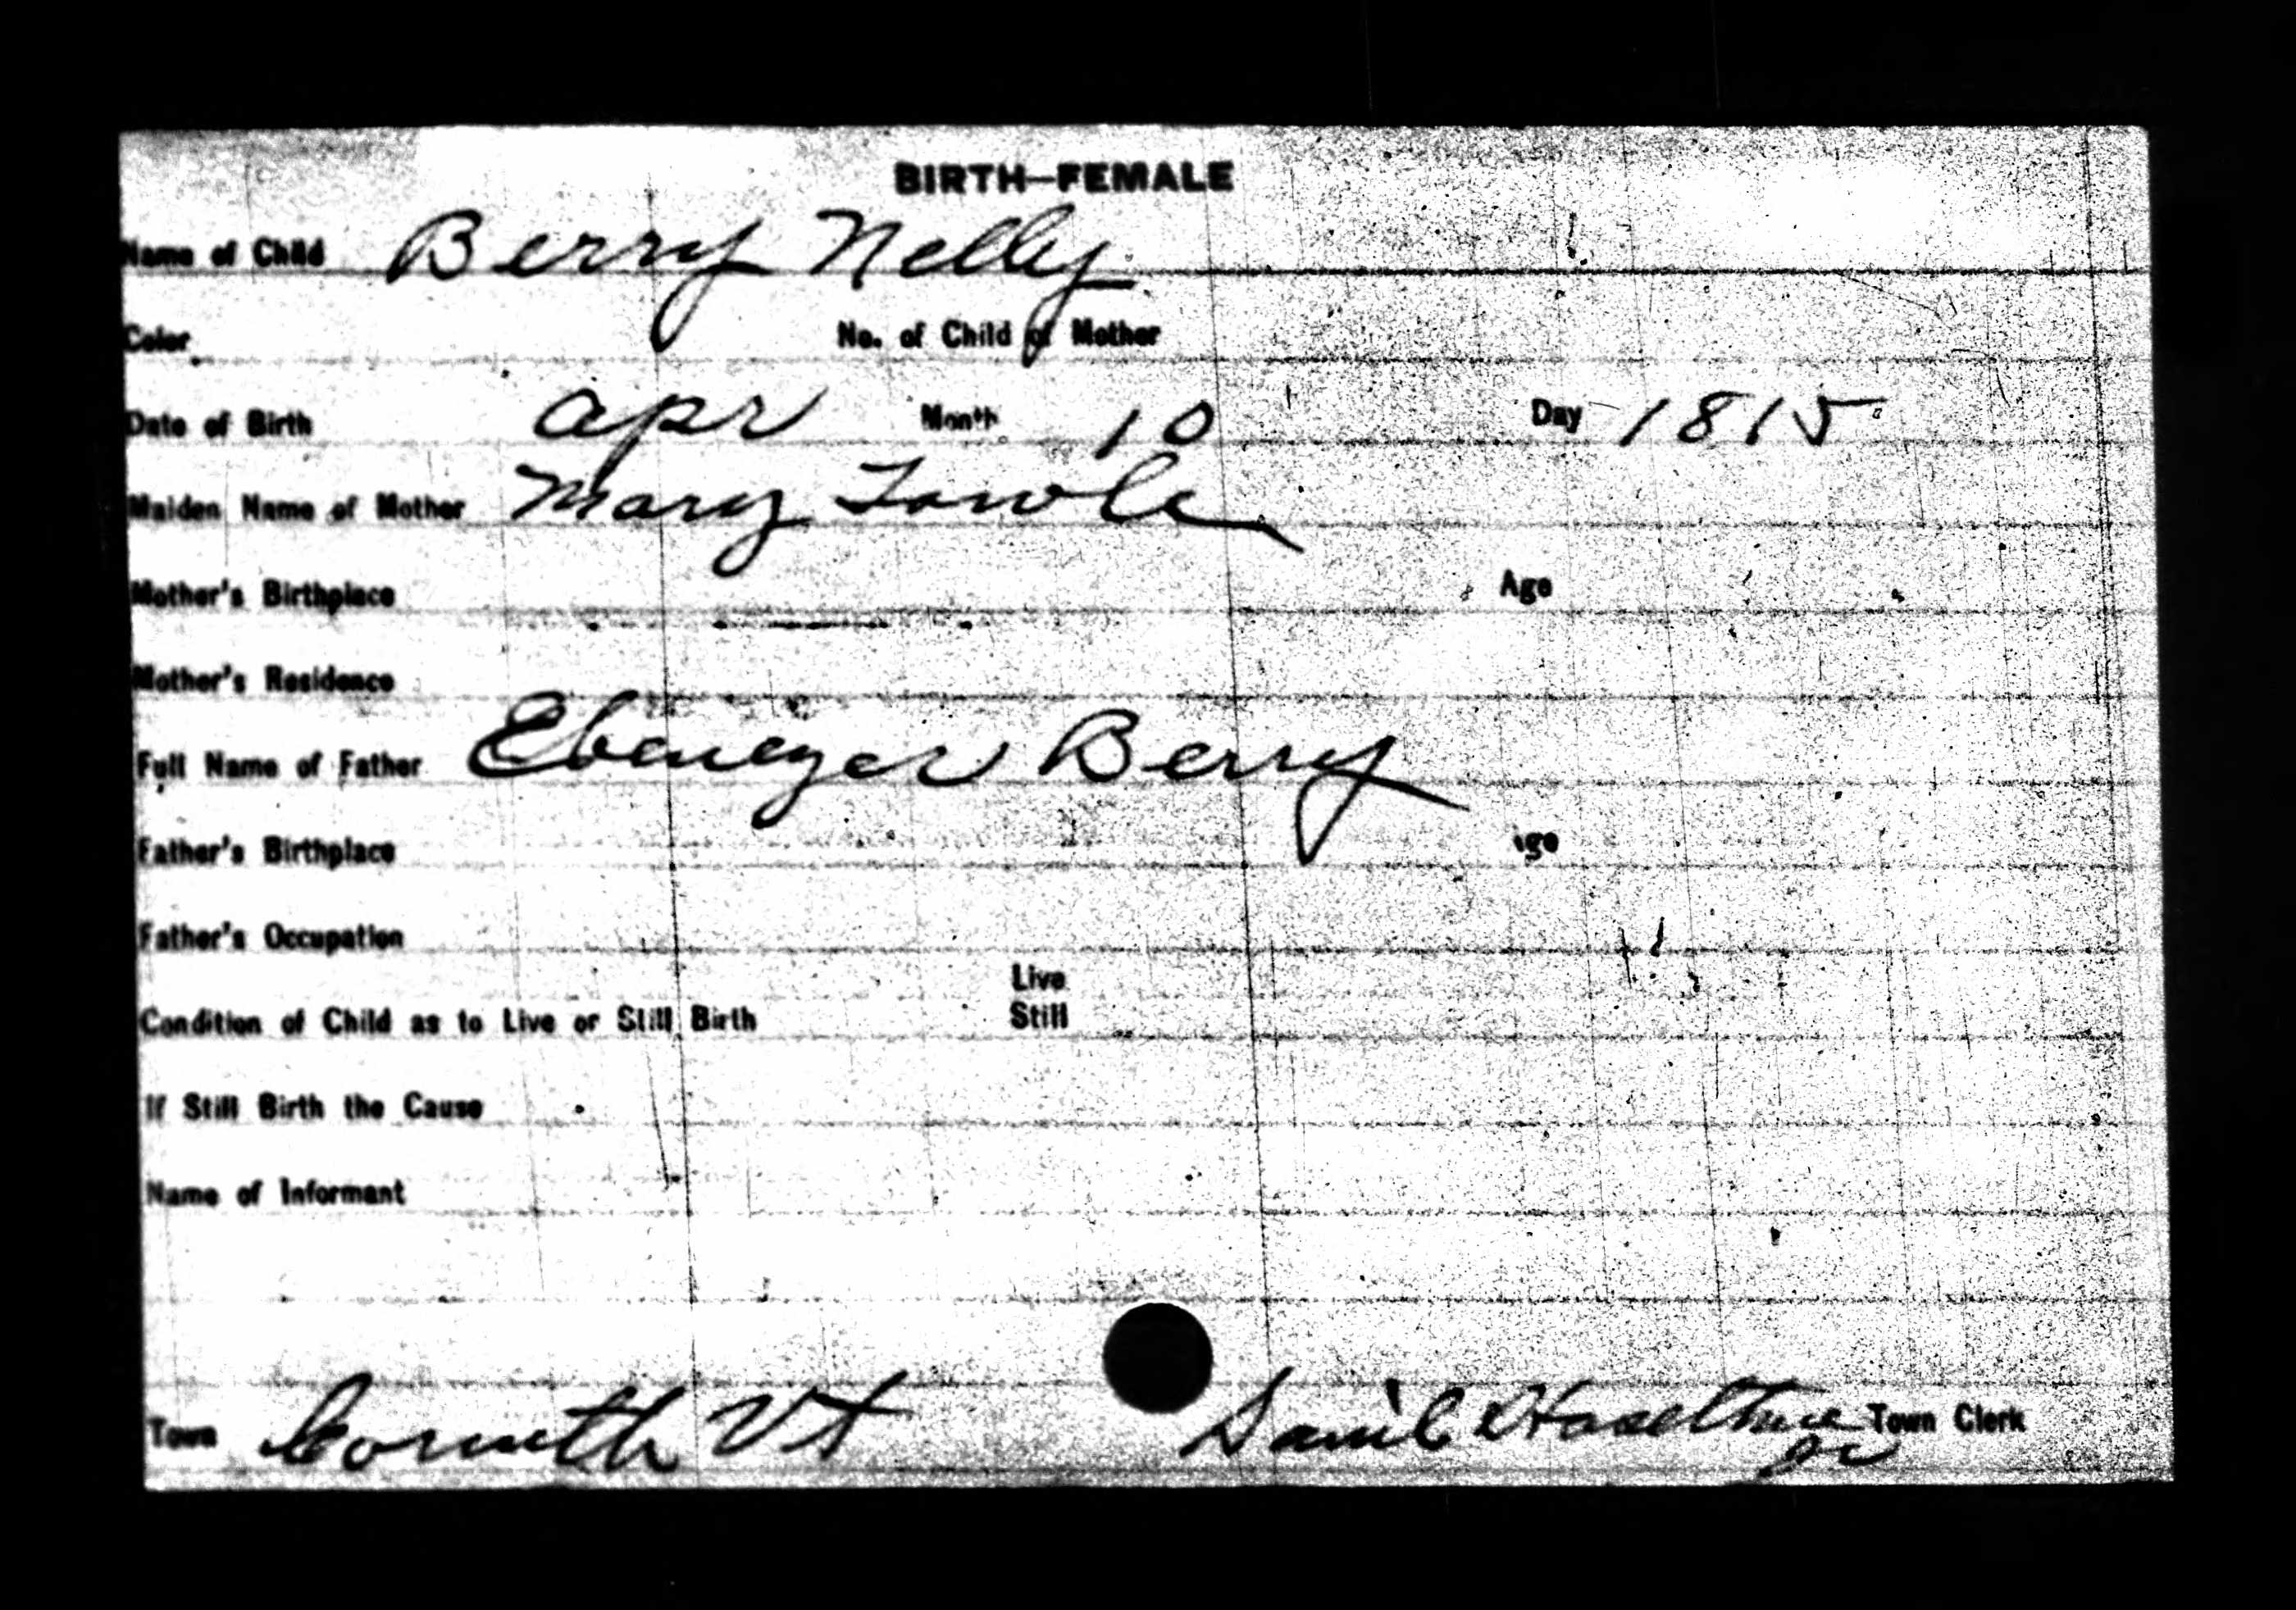 BIRTH—FEMALE
Name of Child Berry Nelly
Color No. of Child of Mother
Date of Birth Apr Month 10 Day 1815
Maiden Name of Mother Mary Towle
Mother's Birthplace Age
Mother's Residence
Full Name of Father Ebenezer Berry
Father's Birthplace Age
Father's Occupation
Live
Condition of Child as to Live or Still Birth Still
If Still Birth the Cause
Name of Informant
Town Corinth Vt Town Clerk
Jr